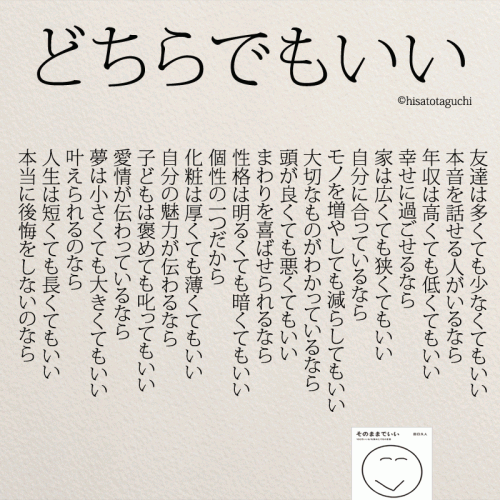 どちらでもいい
©hisatotaguchi
友達は多くても少なくてもいい
本音を話せる人がいるなら
年収は高くても低くてもいい
幸せに過ごせるなら
家は広くても狭くてもいい
自分に合っているなら
モノを増やしても減らしてもいい
大切なものがわかっているなら
頭が良くても悪くてもいい
まわりを喜ばせられるなら
性格は明るくても暗くてもいい
個性の一つだから
化粧は厚くても薄くてもいい
自分の魅力が伝わるなら
子どもは褒めても叱ってもいい
愛情が伝わっているなら
夢は小さくても大きくてもいい
叶えられるのなら
人生は短くても長くてもいい
本当に後悔をしないのなら
そのままでいい